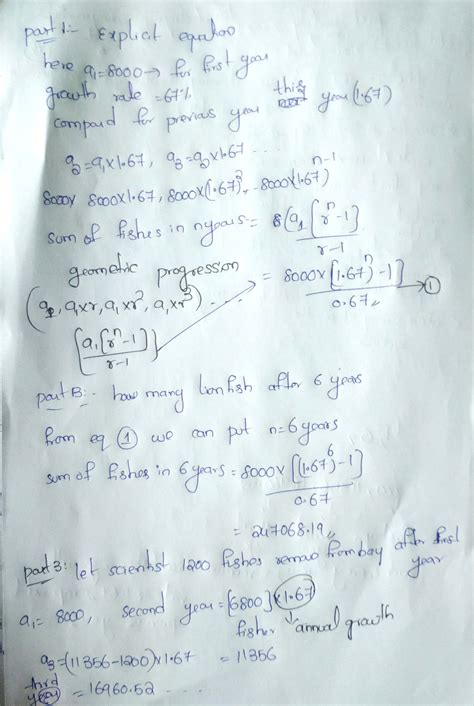 part 1:- Explicit equation
here a₁=8000 → for first year
growth rate = 67%
compard for previas year this year (1.67)
a₂=a₁x1.67, a₃=a₂x1.67 ....
8000x 8000x1.67, 8000x(1.67)², - 8000x(1.67)ⁿ⁻¹
sum of fishes in nyears = (a₁[rⁿ-1]) / r-1
geometric progression
= 8000x[(1.67)ⁿ-1] / 0.67 → ①
(a₁, a₁xr, a₁xr², a₁xr³) ....
[a₁[rⁿ-1] / r-1]
part B:- how many lion fish after 6 years
from eq ① we can put n=6 years
sum of fishes in 6 years = 8000x[(1.67)⁶-1] / 0.67
= 247068.19
part 3: let scientist 1200 fishes remao from bay after first year
a₁= 8000, second year = [6800] x 1.67
fisher ↓ annual growth
a₃=(11356-1200)x1.67 = 11356
third year = 16960.52 ....